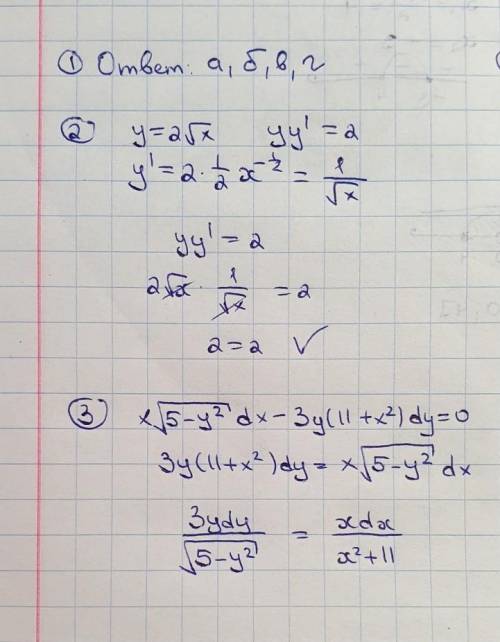 ① Ответ: а, б, в, г
② y=2√x   yy' = 2
y' = 2 · 1/2 x^(-1/2) = 1/√x
yy' = 2
2√x · 1/√x = 2
2 = 2 ✓
③ x√(5-y²) dx - 3y(11+x²)dy = 0
3y(11+x²)dy = x√(5-y²) dx
3ydy/√(5-y²) = xdx/(x²+11)